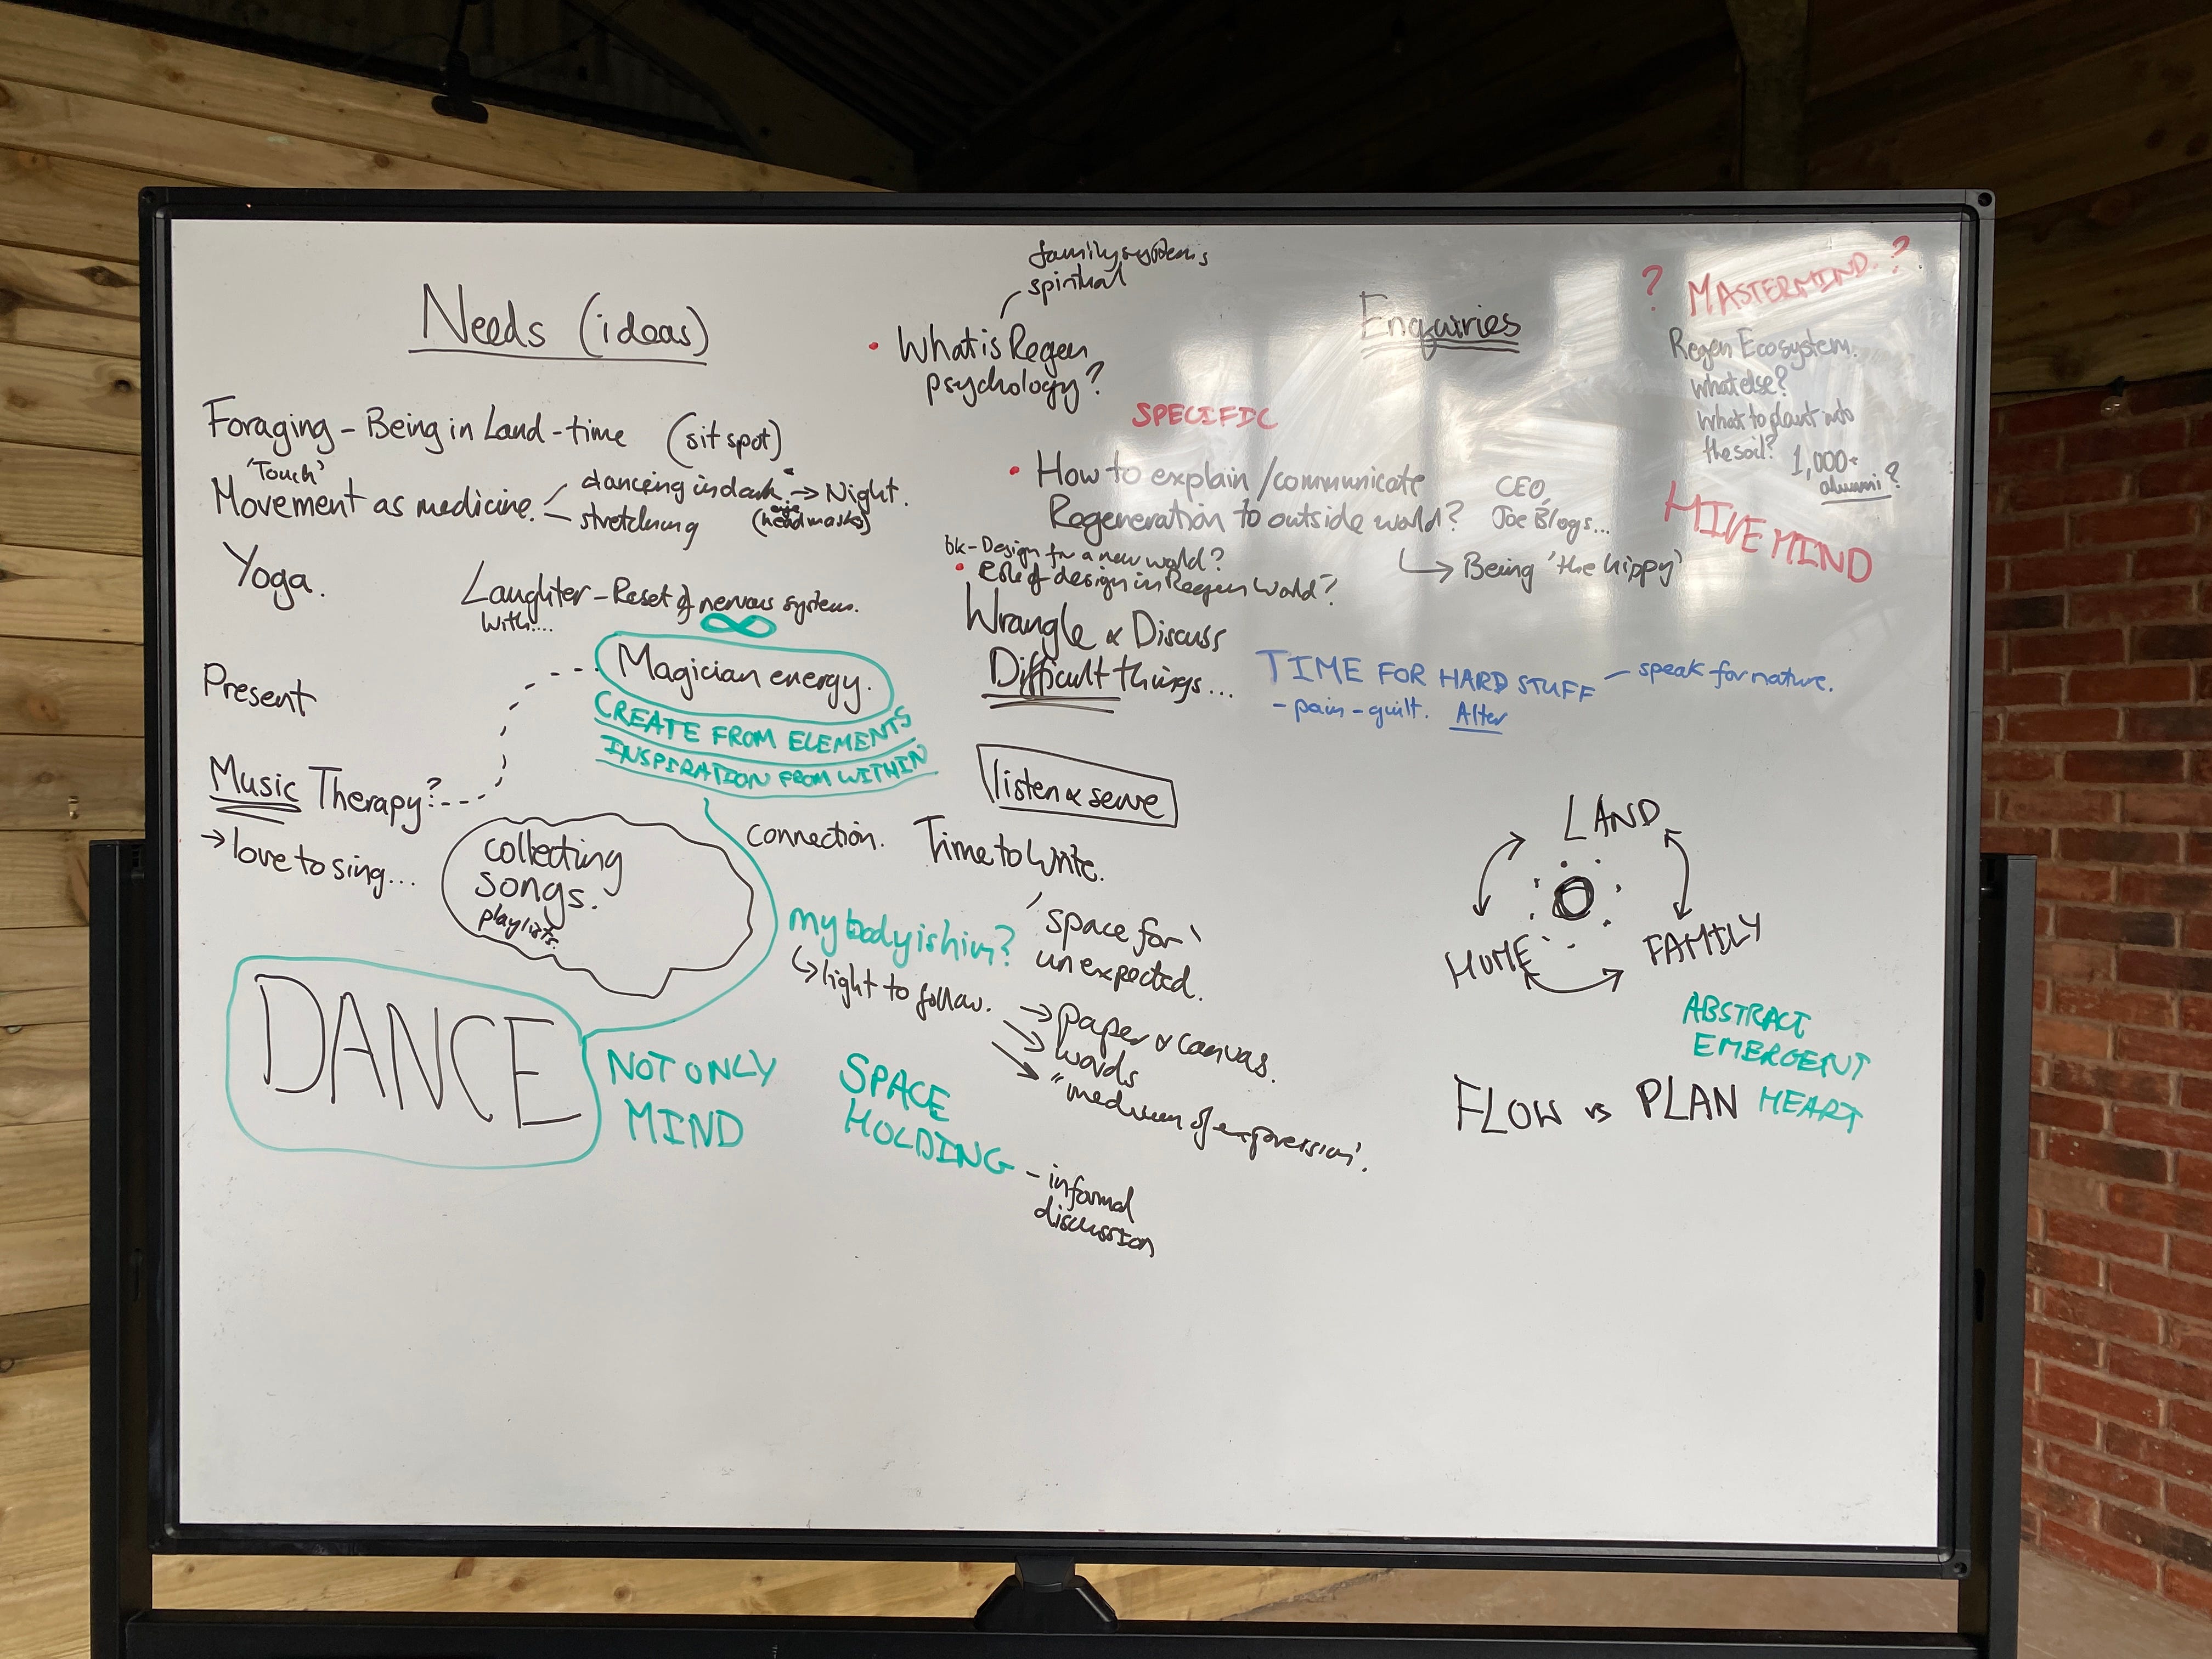 Needs (ideas)
Foraging - Being in Land-time (sit spot)
'Touch'
Movement as medicine.
dancing in dark. → Night.
stretching
eye
(head masks)
Yoga.
Laughter - Reset of nervous system.
with....
Magician energy.
CREATE FROM ELEMENTS
INSPIRATION FROM WITHIN
Present
Music Therapy?
→ love to sing...
collecting
songs.
playlists.
DANCE
NOT ONLY
MIND
family systems
spiritual
• What is Regen
psychology?
SPECIFIC
Enquiries
• How to explain / communicate
Regeneration to outside world?
CEO,
Joe Blogs...
↳ Being 'the hippy'
bk - Design for a new world?
• Role of design in Regen World?
Wrangle & Discuss
Difficult things...
TIME FOR HARD STUFF - speak for nature.
- pain - guilt. Alter
listen & serve
Connection.
Time to write.
my body is him?
↳ light to follow.
'space for'
unexpected.
→ paper & canvas.
words
"medium of expression'.
SPACE
HOLDING
- informal
discussion
? MASTERMIND. ?
Regen Ecosystem.
What else?
What to plant into
the soil?
1,000+
alumni?
HIVE MIND
LAND
HOME
FAMILY
ABSTRACT
EMERGENT
FLOW vs PLAN HEART